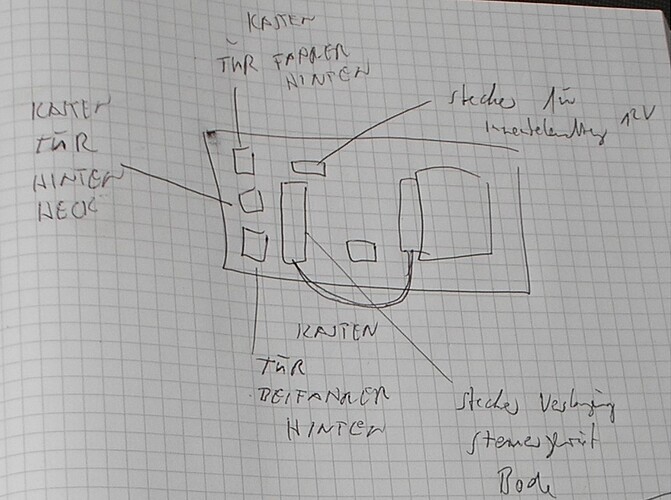 KASTEN
TÜR FAHRER
HINTEN
KASTEN
TÜR
HINTEN
HECK
Stecker für
Innenbeleuchtung 12V
KASTEN
TÜR
BEIFAHRER
HINTEN
Stecker Verlängerung
Steuergerät
Bode